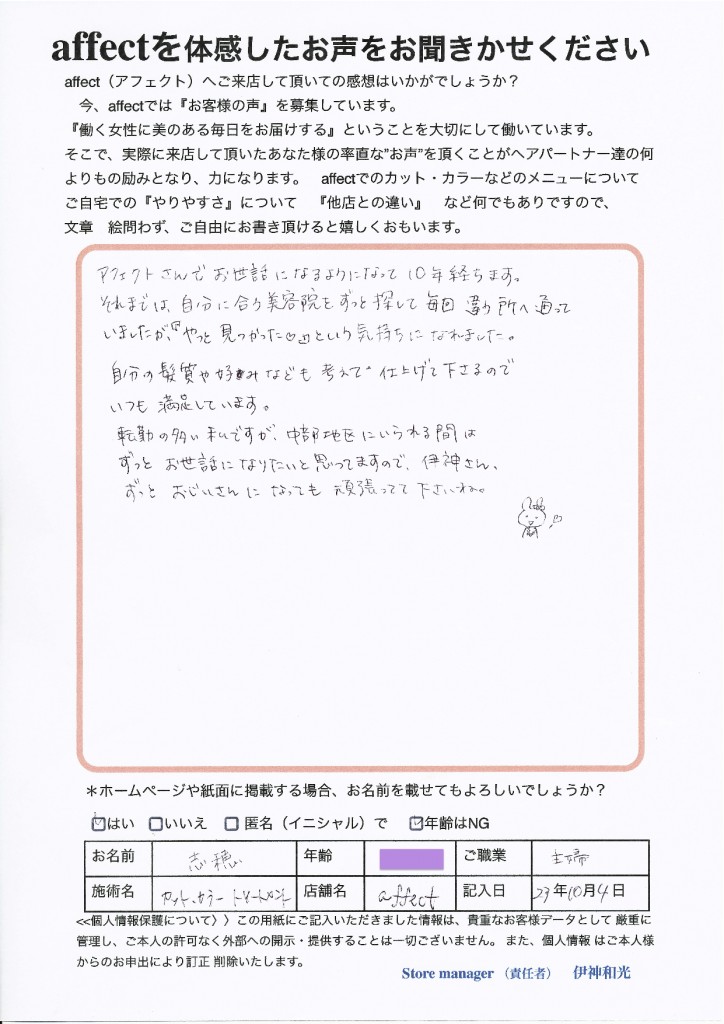 affectを体感したお声をお聞きかせください
affect（アフェクト）へご来店して頂いての感想はいかがでしょうか？
今、affectでは『お客様の声』を募集しています。
『働く女性に美のある毎日をお届けする』ということを大切にして働いています。
そこで、実際に来店して頂いたあなた様の率直な”お声”を頂くことがヘアパートナー達の何
よりもの励みとなり、力になります。 affectでのカット・カラーなどのメニューについて
ご自宅での『やりやすさ』について 『他店との違い』 など何でもありですので、
文章 絵問わず、ご自由にお書き頂けると嬉しくおもいます。
アフェクトさんでお世話になるようになって10年経ちます。
それまでは、自分に合う美容院をずっと探して毎回違う所へ通って
いましたが、『やっと見つかった♡』という気持ちになれました。
自分の髪質や好みなども考えて仕上げて下さるので
いつも満足しています。
転勤の多い私ですが、中部地区にいられる間は
ずっとお世話になりたいと思ってますので、伊神さん、
ずっとおじいさんになっても頑張ってて下さいね。
＊ホームページや紙面に掲載する場合、お名前を載せてもよろしいでしょうか？
☑はい □いいえ □ 匿名（イニシャル）で ☑年齢はNG
お名前 志穂 年齢 ご職業 主婦
施術名 カット、カラー トリートメント 店舗名 affect 記入日 23年10月4日
<<個人情報保護について〉〉この用紙にご記入いただきました情報は、貴重なお客様データとして 厳重に
管理し、ご本人の許可なく外部への開示・提供することは一切ございません。 また、個人情報 はご本人様
からのお申出により訂正 削除いたします。
Store manager （責任者） 伊神和光